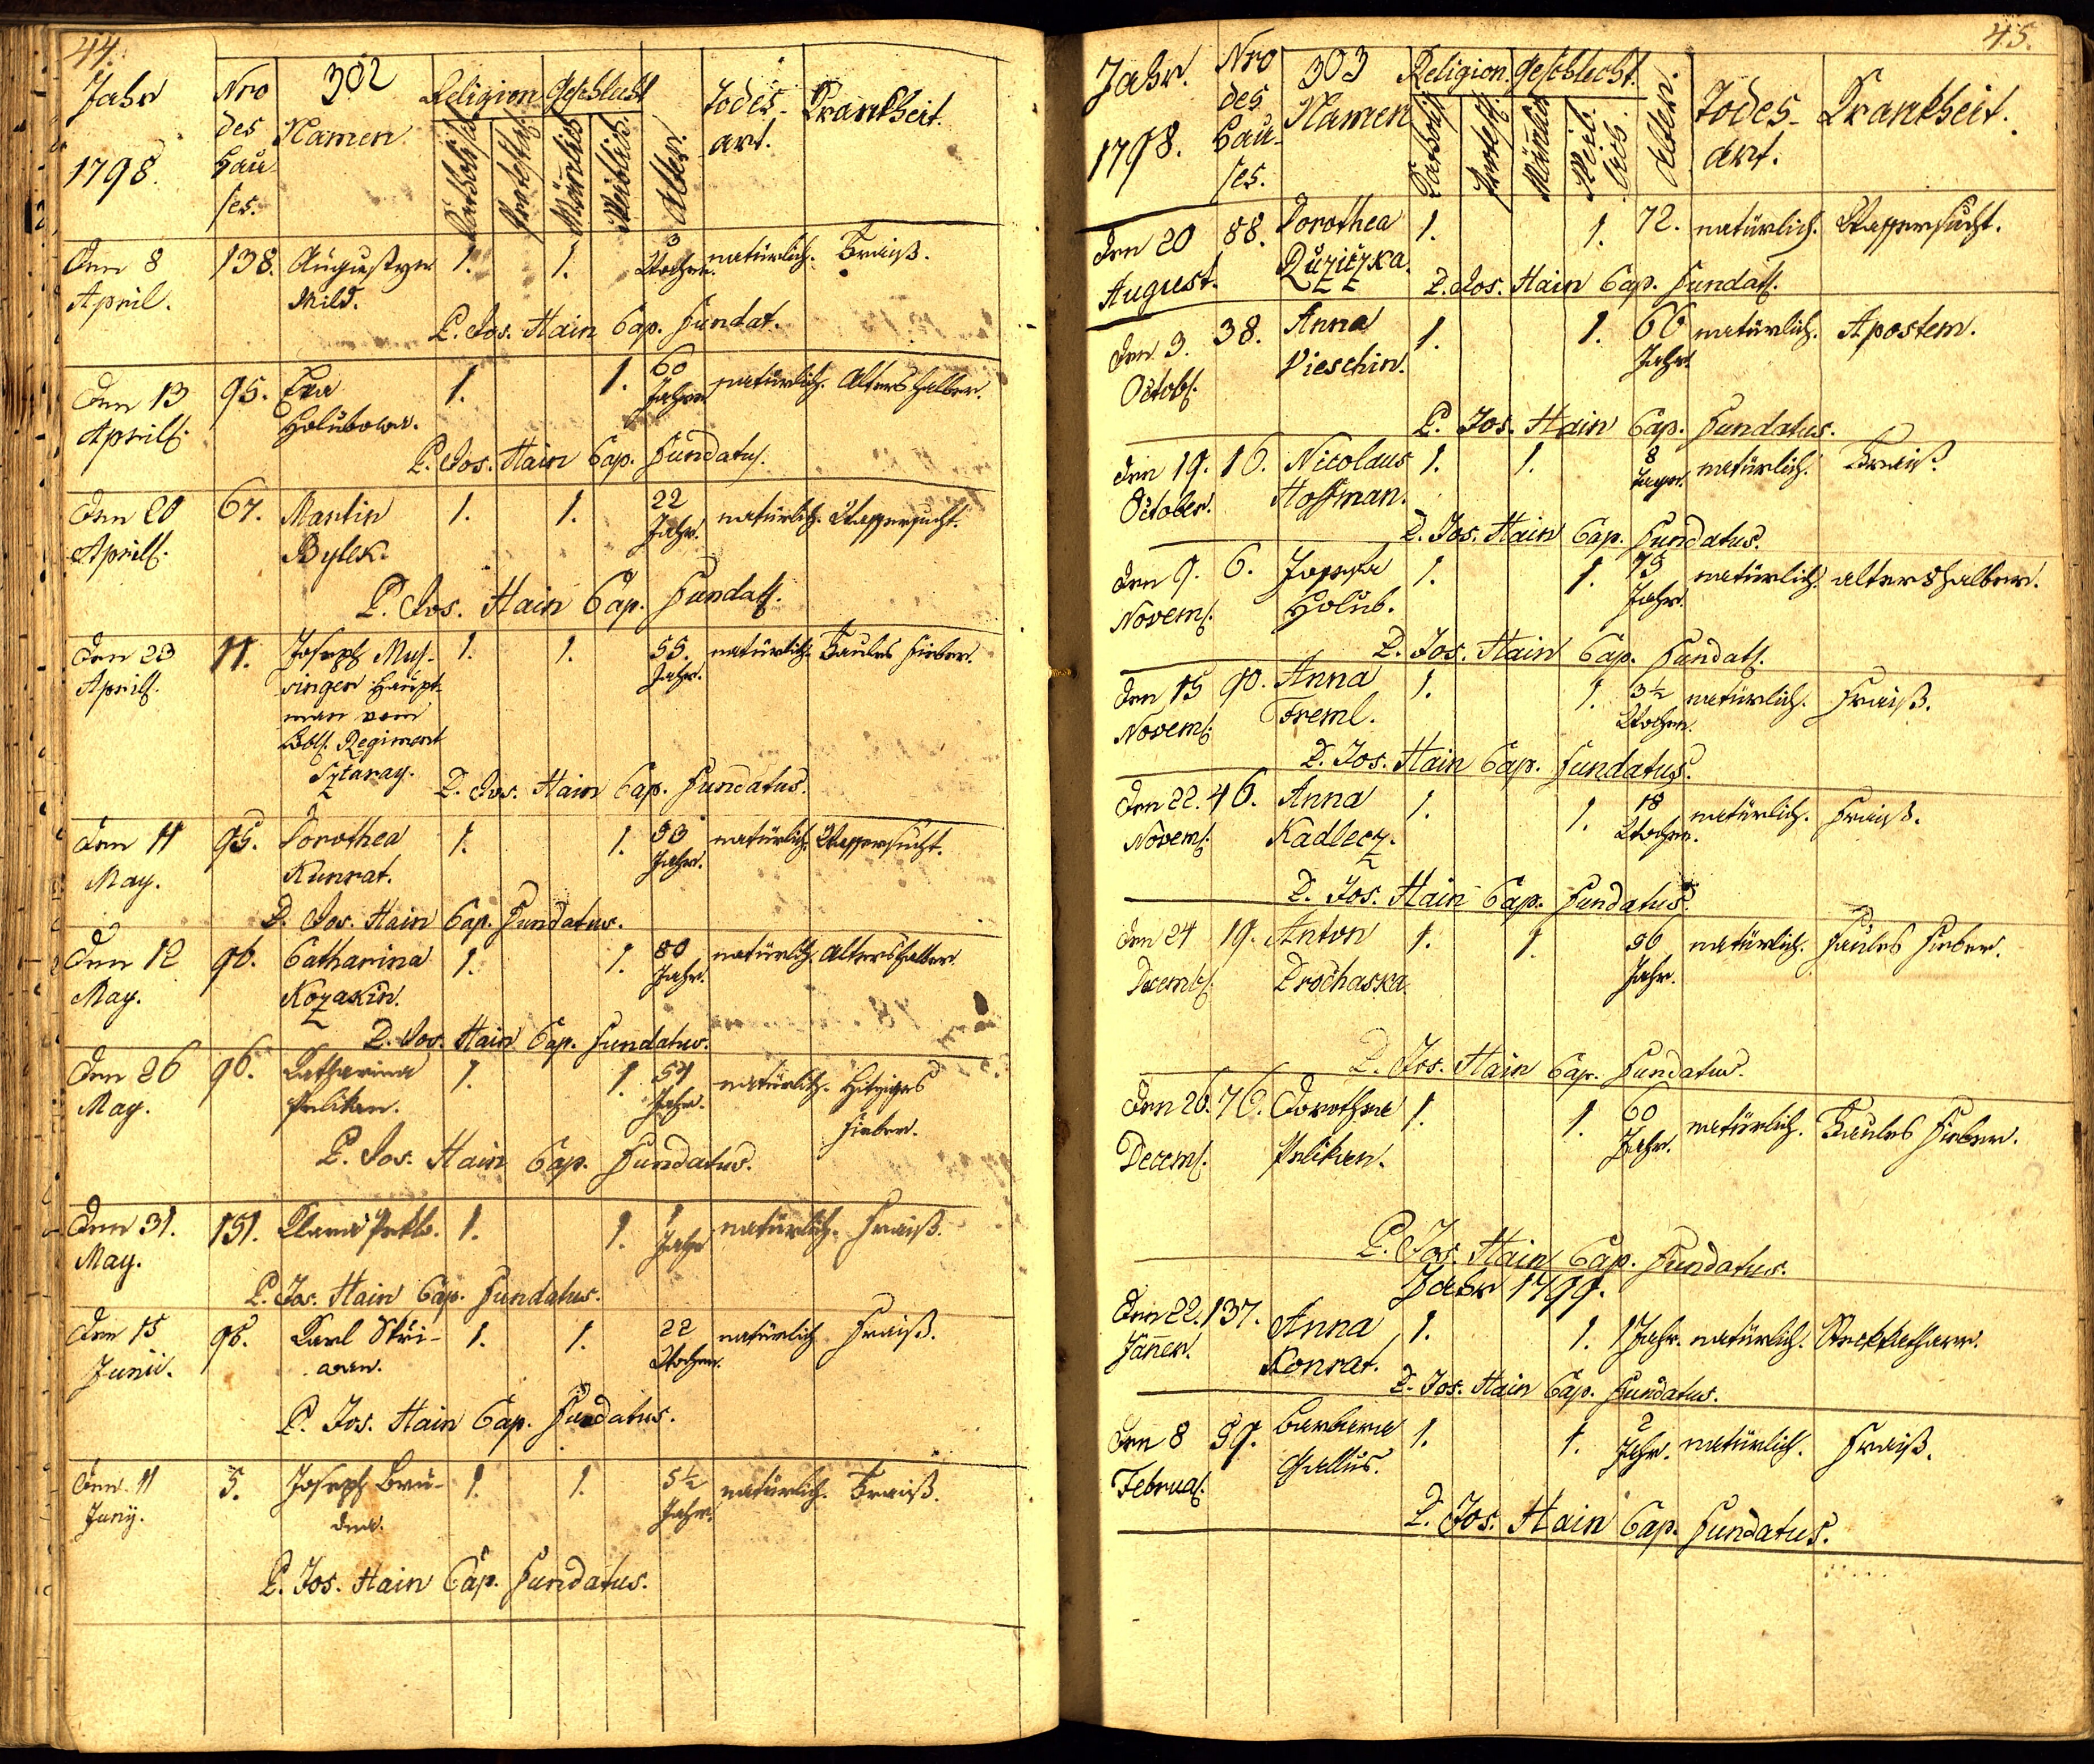 44.
Jahr 1798. Nro des Hau- ses. 302 Namen. Religion Geschlecht Alter. Todes- art. Krankheit.
Katholisch Protest. Mänlich Weiblich.
Den 8 138. Augustyn 1. 1. 3 Wochen. natürlich. Fraiß.
April. Mild.
P. Jos. Hain Cap. Fundat.
Den 13 95. Eva 1. 1. 60 Jahre natürlich. Altershalber.
April Holubowa.
P. Jos. Hain Cap. Fundatus.
Den 20 67. Martin 1. 1. 22 Jahr. natürlich. Wassersucht.
April Bylek.
P. Jos. Hain Cap. Fundat.
Den 23 11. Joseph Mus- 1. 1. 55. Jahr. natürlich. Faules Fieber.
April singer Haupt-
man vom
Löbl. Regiment
Sztaray.
P. Jos. Hain Cap. Fundatus.
Den 11 95. Dorothea 1. 1. 53 Jahr. natürlich. Wassersucht.
May. Kunrat.
P. Jos. Hain Cap. Fundatus.
Den 12 96. Catharina 1. 1. 80 Jahr. natürlich. Altershalber.
May. Kozakin.
P. Jos. Hain Cap. Fundatus.
Den 26 96. Katharina 1. 1. 54 Jahr. natürlich. Hitziges
May. Pelikan. Fieber.
P. Jos. Hain Cap. Fundatus.
Den 31. 151. Klara 1. 1. 1 Jahr natürlich. Fraiß.
May.
P. Jos. Hain Cap. Fundatus.
Den 15 96. Karl Skři- 1. 1. 22 Wochen. natürlich Fraiß.
Junii. wan.
P. Jos. Hain Cap. Fundatus.
Den 11 5. Joseph Bru- 1. 1. 5½ Jahr. natürlich. Fraiß.
Juny. dna.
P. Jos. Hain Cap. Fundatus.
45.
Jahr. 1798. Nro des Hau- ses. 303 Namen Religion. Geschlecht. Alter. Todes- art. Krankheit.
Katholisch Protest. Mänlich Weib- lich.
Den 20 88. Dorothea 1. 1. 72. natürlich. Wassersucht.
August. Ružiczka.
P. Jos. Hain Cap. Fundat.
Den 3. 38. Anna 1. 1. 66 Jahr. natürlich. Apostem.
Octob. Vieschin.
P. Jos. Hain Cap. Fundatus.
Den 19. 16. Nicolaus 1. 1. 8 Tagen. natürlich. Fraiß.
October. Hoffman.
P. Jos. Hain Cap. Fundatus.
Den 9. 6. Josepha 1. 1. 73 Jahr. natürlich. altershalber.
Novem. Holub.
P. Jos. Hain Cap. Fundat.
Den 15 90. Anna 1. 1. 3½ Wochen. natürlich. Fraiß.
Novem. Treml.
P. Jos. Hain Cap. Fundatus.
Den 22. 46. Anna 1. 1. 18 Wochen. natürlich. Fraiß.
Novem. Kadlecz.
P. Jos. Hain Cap. Fundatus.
Den 24 19. Anton 1. 1. 36 Jahr. natürlich. Faules Fieber.
Decemb. Prochaska.
P. Jos. Hain Cap. Fundatus.
Den 26. 76. Dorothea 1. 1. 60 Jahr. natürlich. Faules Fieber.
Decem. Pelikan.
P. Jos. Hain Cap. Fundatus.
Jahr 1799.
Den 22. 137. Anna 1. 1. 1 Jahr. natürlich. Steckkatharr.
Jäner. Konrat.
P. Jos. Hain Cap. Fundatus.
Den 8 59. Barbara 1. 1. 2 Jahr. natürlich. Fraiß.
Februa. Gallus.
P. Jos. Hain Cap. Fundatus.